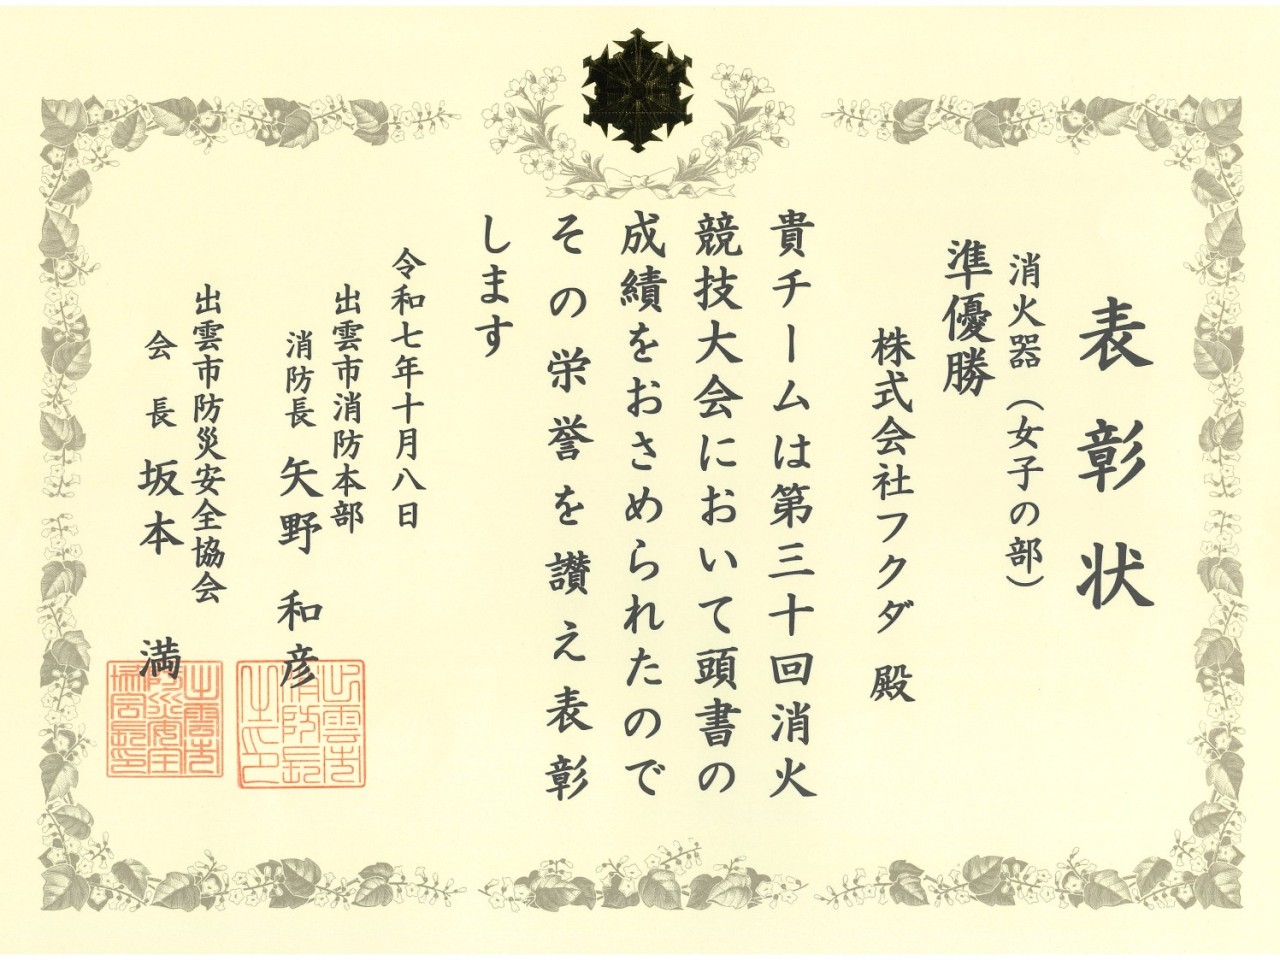 表彰状
消火器（女子の部）
準優勝
株式会社フクダ 殿
貴チームは第三十回消火
競技大会において頭書の
成績をおさめられたので
その栄誉を讃え表彰
します
令和七年十月八日
出雲市消防本部
消防長 矢野 和彦
出雲市消防長之印
出雲市防災安全協会
会長 坂本 満
出雲市防災安全協会長印